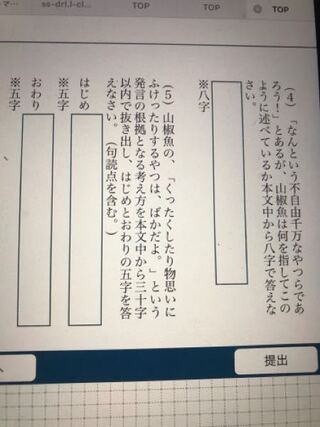 ss-drl.l-cl…
TOP
TOP
TOP
(4)「なんという不自由千万なやつらであ
ろう！」とあるが、山椒魚は何を指してこの
ように述べているか本文中から八字で答えな
さい。
※八字
(5)山椒魚の、「くったくしたり物思いに
ふけったりするやつは、ばかだよ。」という
発言の根拠となる考え方を本文中から三十字
以内で抜き出し、はじめとおわりの五字を答
えなさい。（句読点を含む。）
はじめ
※五字
おわり
※五字
提出